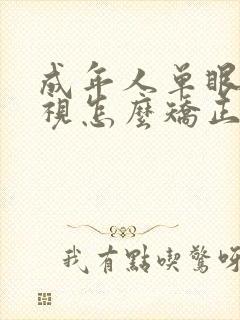 成年人单眼
視怎麽矯正
我有點喫驚呀